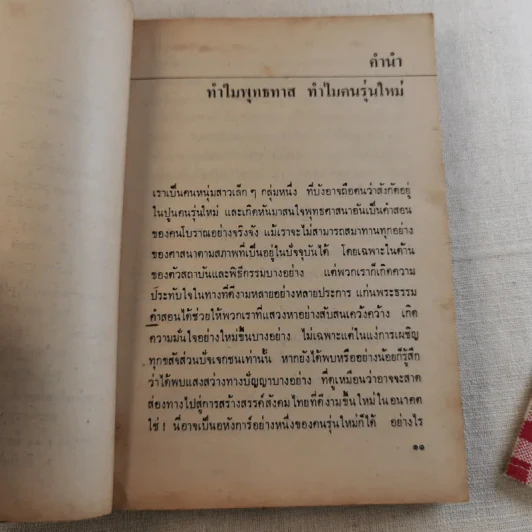 คำนำ
ทำไมพุทธทาส ทำไมคนรุ่นใหม่
เราเป็นคนหนุ่มสาวเล็ก ๆ กลุ่มหนึ่ง ที่บังอาจถือตนว่าสังกัดอยู่
ในปูนคนรุ่นใหม่ และเกิดหันมาสนใจพุทธศาสนาอันเป็นคำสอน
ของคนโบราณอย่างจริงจัง แม้เราจะไม่สามารถสมาทานทุกอย่าง
ของศาสนาตามสภาพที่เป็นอยู่ในปัจจุบันได้ โดยเฉพาะในด้าน
ของตัวสถาบันและพิธีกรรมบางอย่าง แต่พวกเราก็เกิดความ
ประทับใจในทางที่ดีงามหลายอย่างหลายประการ แก่นพระธรรม
คำสอนได้ช่วยให้พวกเราที่แสวงหาอย่างสับสนเคว้งคว้าง เกิด
ความมั่นใจอย่างใหม่ขึ้นบางอย่าง ไม่เฉพาะแต่ในแง่การเผชิญ
ทุกขสัจส่วนปัจเจกชนเท่านั้น หากยังได้พบหรืออย่างน้อยก็รู้สึก
ว่าได้พบแสงสว่างทางปัญญาบางอย่าง ที่ดูเหมือนว่าอาจจะสาด
ส่องทางไปสู่การสร้างสรรค์สังคมไทยที่ดีงามขึ้นใหม่ในอนาคต
ใช่ ! นี่อาจเป็นอหังการ์อย่างหนึ่งของคนรุ่นใหม่ก็ได้ อย่างไร
๑๑